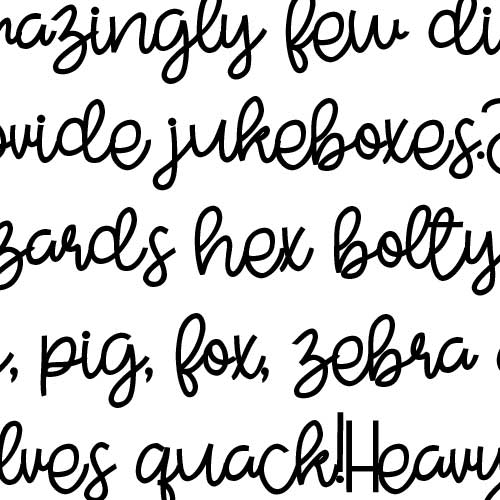 mazingly few di
ovide jukeboxes.
zards hex bolty
, pig, fox, zebra
lves quack!Heavy